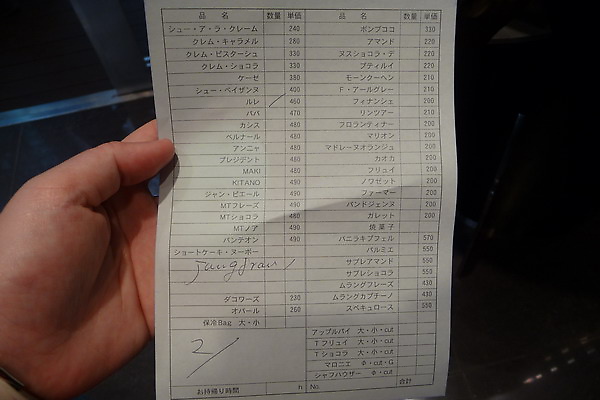 品 名 数量 単価
シュー・ア・ラ・クレーム 240
クレム・キャラメル 280
クレム・ピスターシュ 330
クレム・ショコラ 330
ケーゼ 380
シュー・ペイザンヌ 400
ルレ 460
ババ 470
カシス 480
ベルナール 480
アンニャ 480
プレジデント 480
MAKI 480
KITANO 490
ジャン・ピエール 490
MTフレーズ 490
MTショコラ 480
MTノア 490
パンテオン 490
ショートケーキ・ヌーボー
Jungfrau
ダコワーズ 230
オパール 260
保冷Bag 大・小
2/
お持帰り時間 h
品 名 数量 単価
ボンブココ 330
アマンド 220
ヌスショコラ・デ 220
プティルイ 220
モーンクーヘン 210
F・アールグレー 210
フィナンシェ 200
リンツァー 210
フロランティナー 200
マリオン 200
マドレーヌオランジュ 200
カオカ 200
フリュイ 200
ノワゼット 200
ファーマー 200
パンドジェンヌ 200
ガレット 200
焼菓子
バニラキプフェル 570
パルミエ 550
サブレアマンド 550
サブレショコラ 550
ムラングフレーズ 430
ムラングカプチーノ 430
スペキュロース 550
アップルパイ 大・小・cut
Tフリュイ 大・小・cut
Tショコラ 大・小・cut
マロニエ Φ・cut・G
シャフハウザー Φ・cut
No. 合計